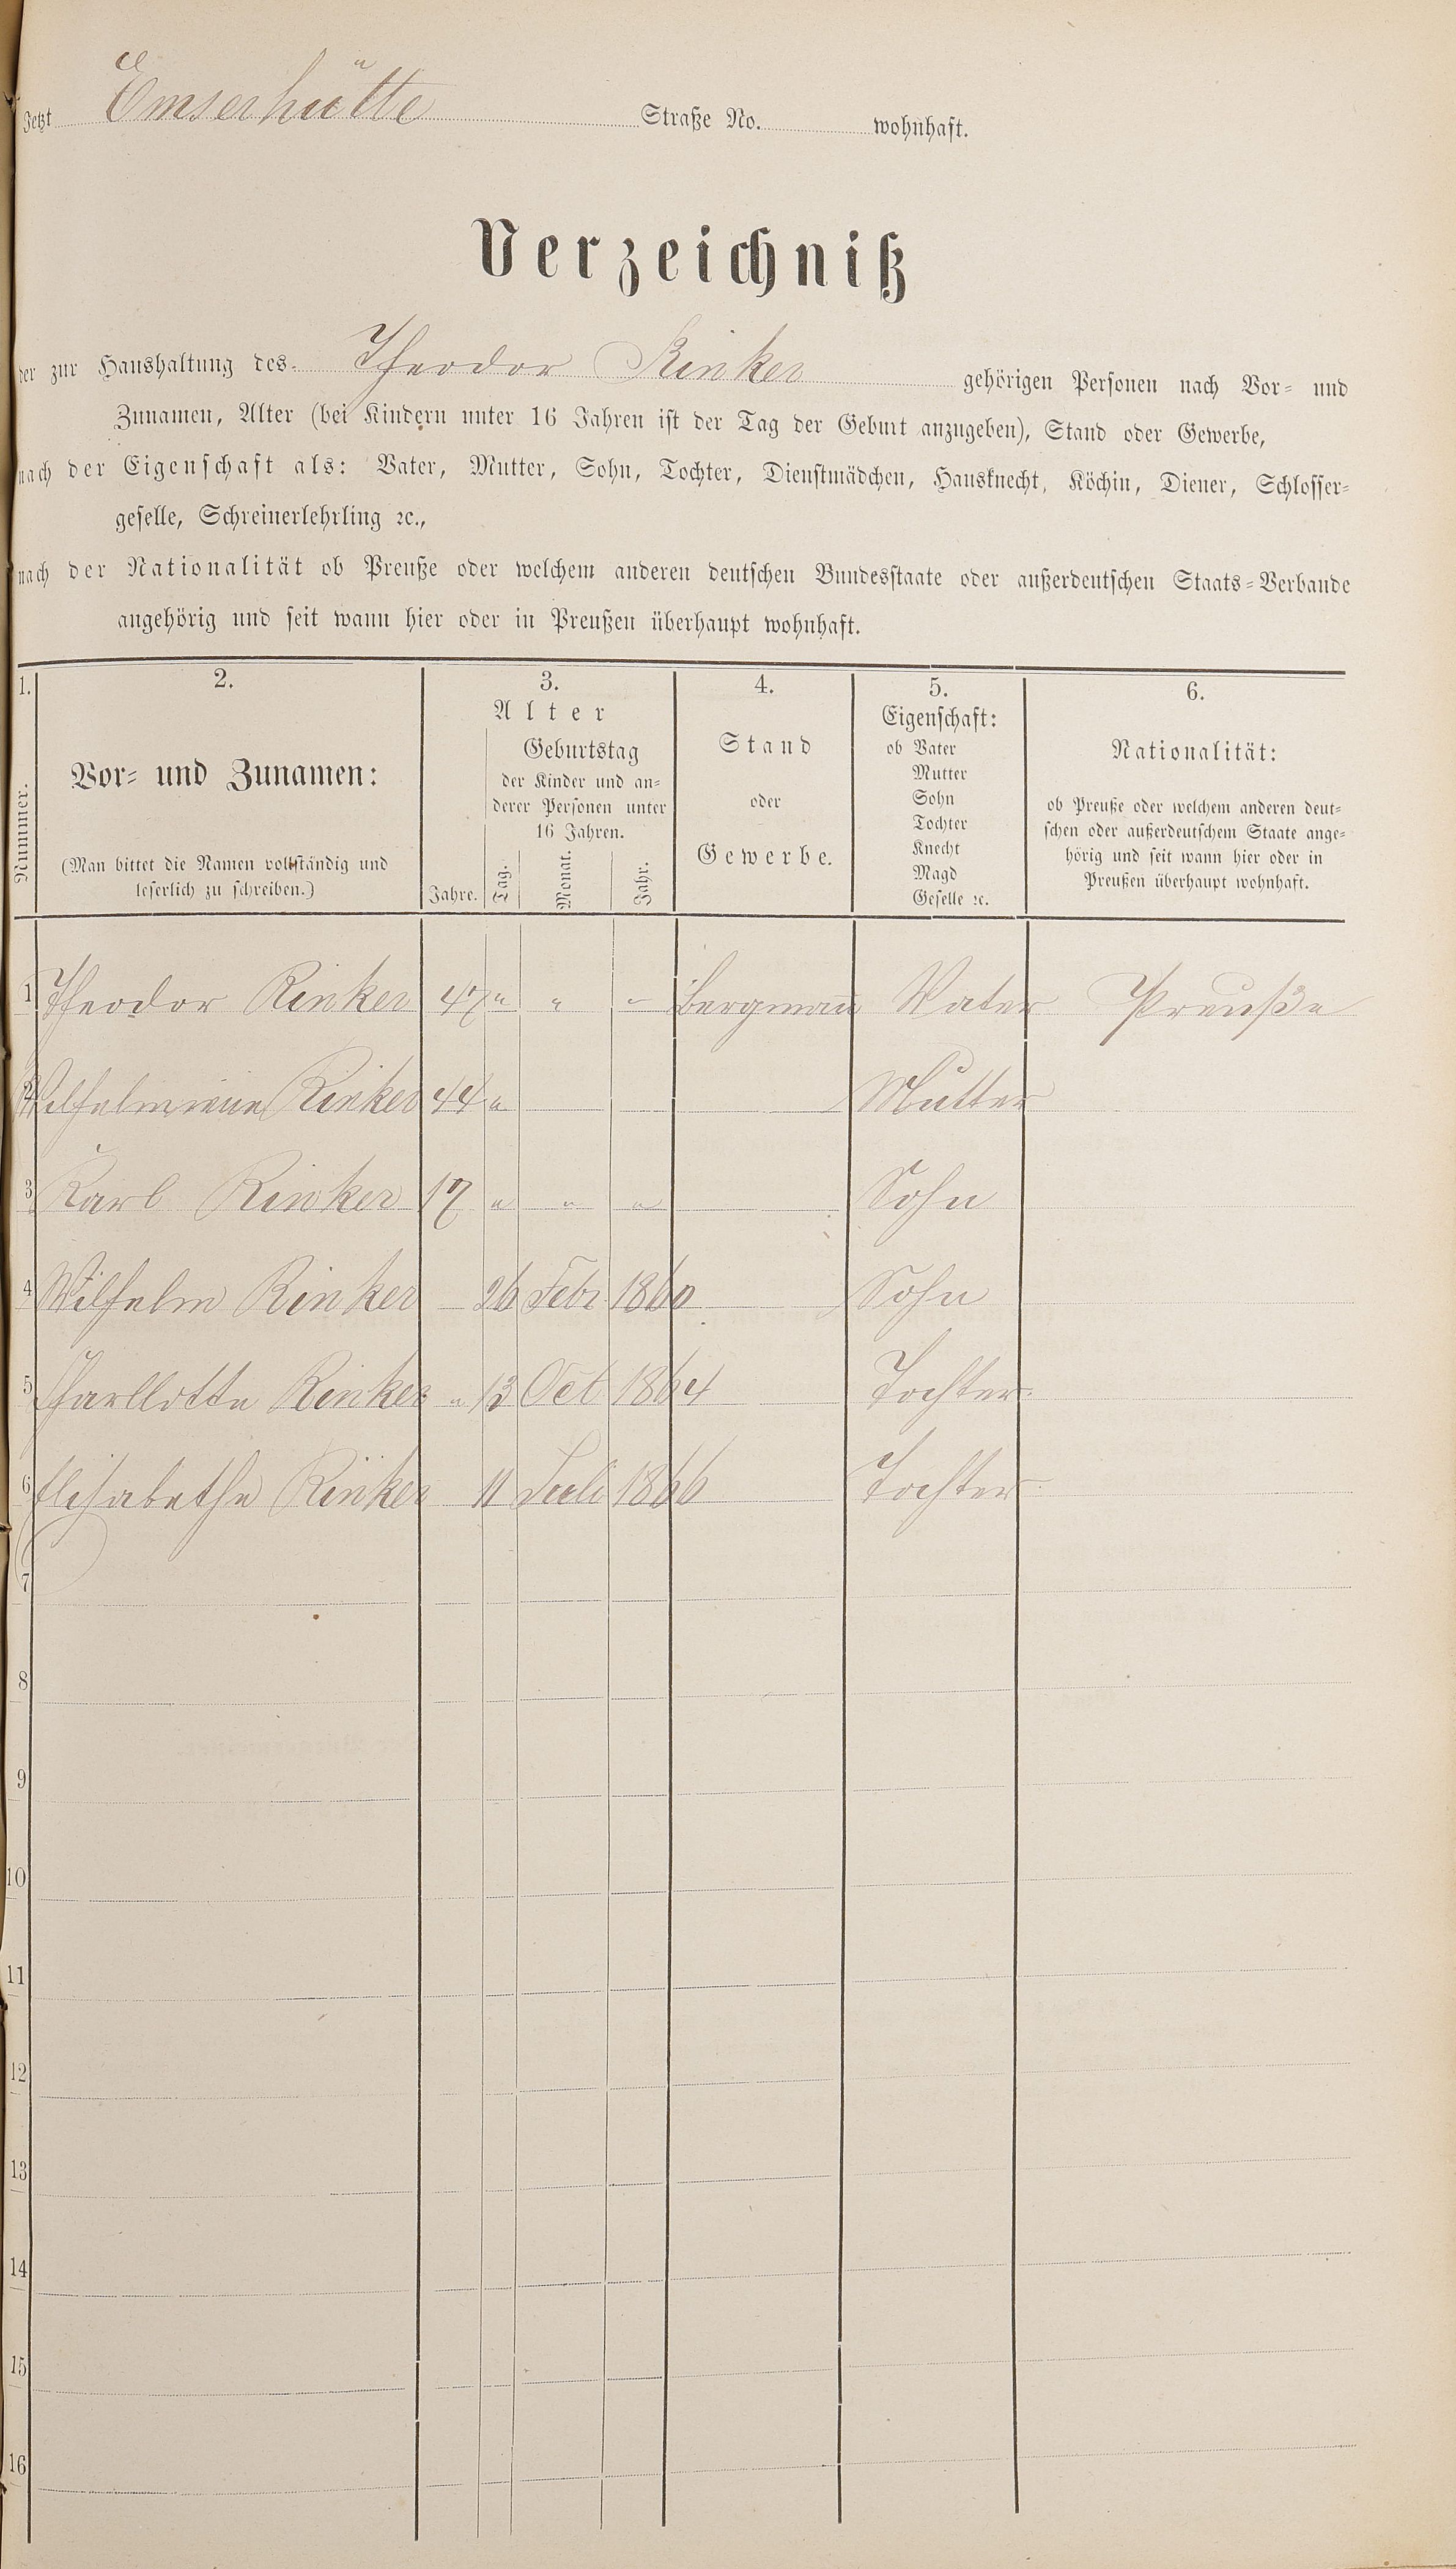 Jetzt Emserhütte Straße No. wohnhaft.
Verzeichniß
der zur Haushaltung des Theodor Rinker gehörigen Personen nach Vor- und
Zunamen, Alter (bei Kindern unter 16 Jahren ist der Tag der Geburt anzugeben), Stand oder Gewerbe,
nach der Eigenschaft als: Vater, Mutter, Sohn, Tochter, Dienstmädchen, Hausknecht, Köchin, Diener, Schlosser-
geselle, Schreinerlehrling ꝛc.,
nach der Nationalität ob Preuße oder welchem anderen deutschen Bundesstaate oder außerdeutschen Staats-Verbande
angehörig und seit wann hier oder in Preußen überhaupt wohnhaft.
1. 2. 3. 4. 5. 6.
Nummer.
Vor- und Zunamen:
(Man bittet die Namen vollständig und
leserlich zu schreiben.)
Alter
Jahre.
Geburtstag
der Kinder und an-
derer Personen unter
16 Jahren.
Tag. Monat. Jahr.
Stand
oder
Gewerbe.
Eigenschaft:
ob Vater
Mutter
Sohn
Tochter
Knecht
Magd
Geselle ꝛc.
Nationalität:
ob Preuße oder welchem anderen deut-
schen oder außerdeutschem Staate ange-
hörig und seit wann hier oder in
Preußen überhaupt wohnhaft.
1 Theodor Rinker 47 " " " Bergmann Vater Preuße
2 Wilhelmiene Rinker 44 " Mutter
3 Karl Rinker 17 " " " Sohn
4 Wilhelm Rinker 26 Febr 1860 Sohn
5 Charllotte Rinker " 13 Oct 1864 Tochter
6 Elisabethe Rinker 11 Juli 1866 Tochter
7
8
9
10
11
12
13
14
15
16